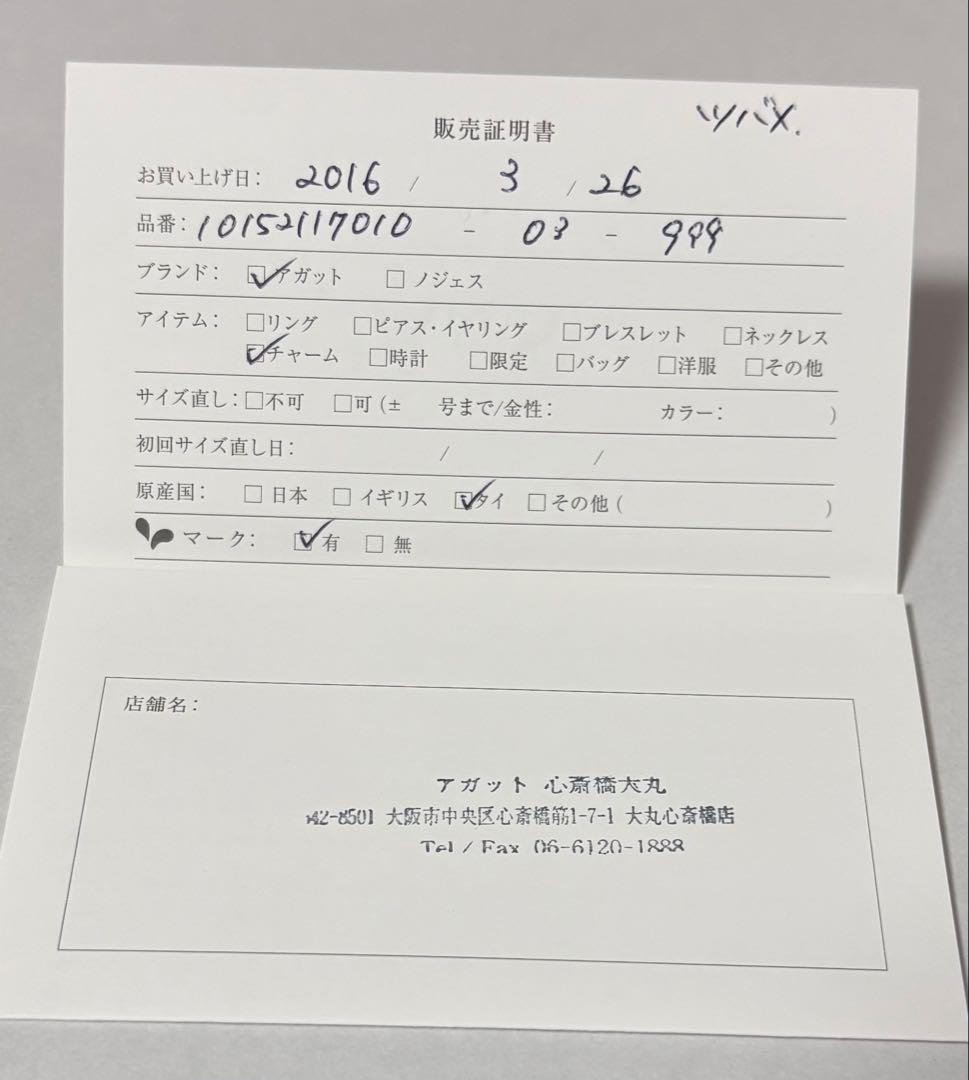 ツバメ.
販売証明書
お買い上げ日: 2016 / 3 / 26
品番: 10152117010 - 03 - 999
ブランド: ☑アガット □ ノジェス
アイテム: □リング □ピアス・イヤリング □ブレスレット □ネックレス
☑チャーム □時計 □限定 □バッグ □洋服 □その他
サイズ直し: □不可 □可 (± 号まで/金性: カラー: )
初回サイズ直し日: / /
原産国: □ 日本 □ イギリス ☑タイ □その他 ( )
マーク: ☑ 有 □ 無
店舗名:
アガット 心斎橋大丸
542-8501 大阪市中央区心斎橋筋1-7-1 大丸心斎橋店
Tel / Fax 06-6120-1888